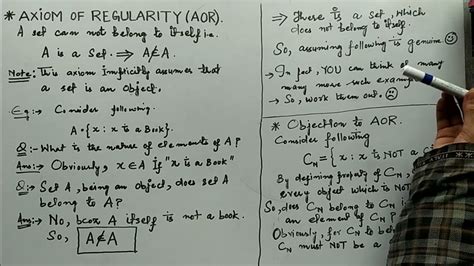 * AXIOM OF REGULARITY (AOR).
A set can not belong to itself i.e.
A is a Set. ⇒ A∉A.
Note: This axiom Implicitly assumes that
a set is an object.
E.g: Consider following.
A = {x : x is a Book}.
Q:- What is the nature of elements of A?
Ans:- Obviously, x∈A If "x is a Book"
Q:- Set A, being an object, does set A
belong to A?
Ans:- No, bcox A itself is not a book.
So, A∉A
⇒ There is a Set, which
does not belong to itself.
So, assuming following is genuine
→ In fact, YOU can think of many
many more such
→ So, work them out.
* Objection to AOR.
Consider following
C_N = {x : x is NOT a C
By defining propty of C_N,
every object which is NOT
So, does C_N belong to
an element of C_N
Obviously, for C_N to be
C_N must NOT be a